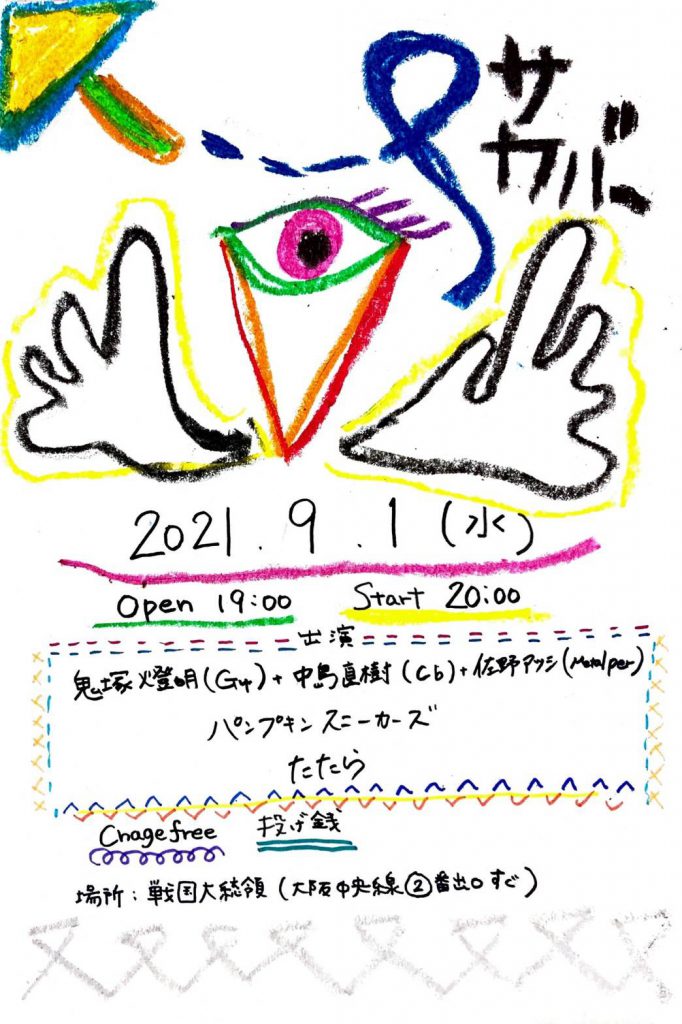 サ
カバー
2021.9.1(水)
Open 19:00 Start 20:00
出演
鬼塚燈明(Gt)+中島直樹(Cb)+佐野アツシ(Metal per)
パンプキンスニーカーズ
たたら
Chagefree 投げ銭
場所:戦国大統領(大阪中央線②番出口すぐ)